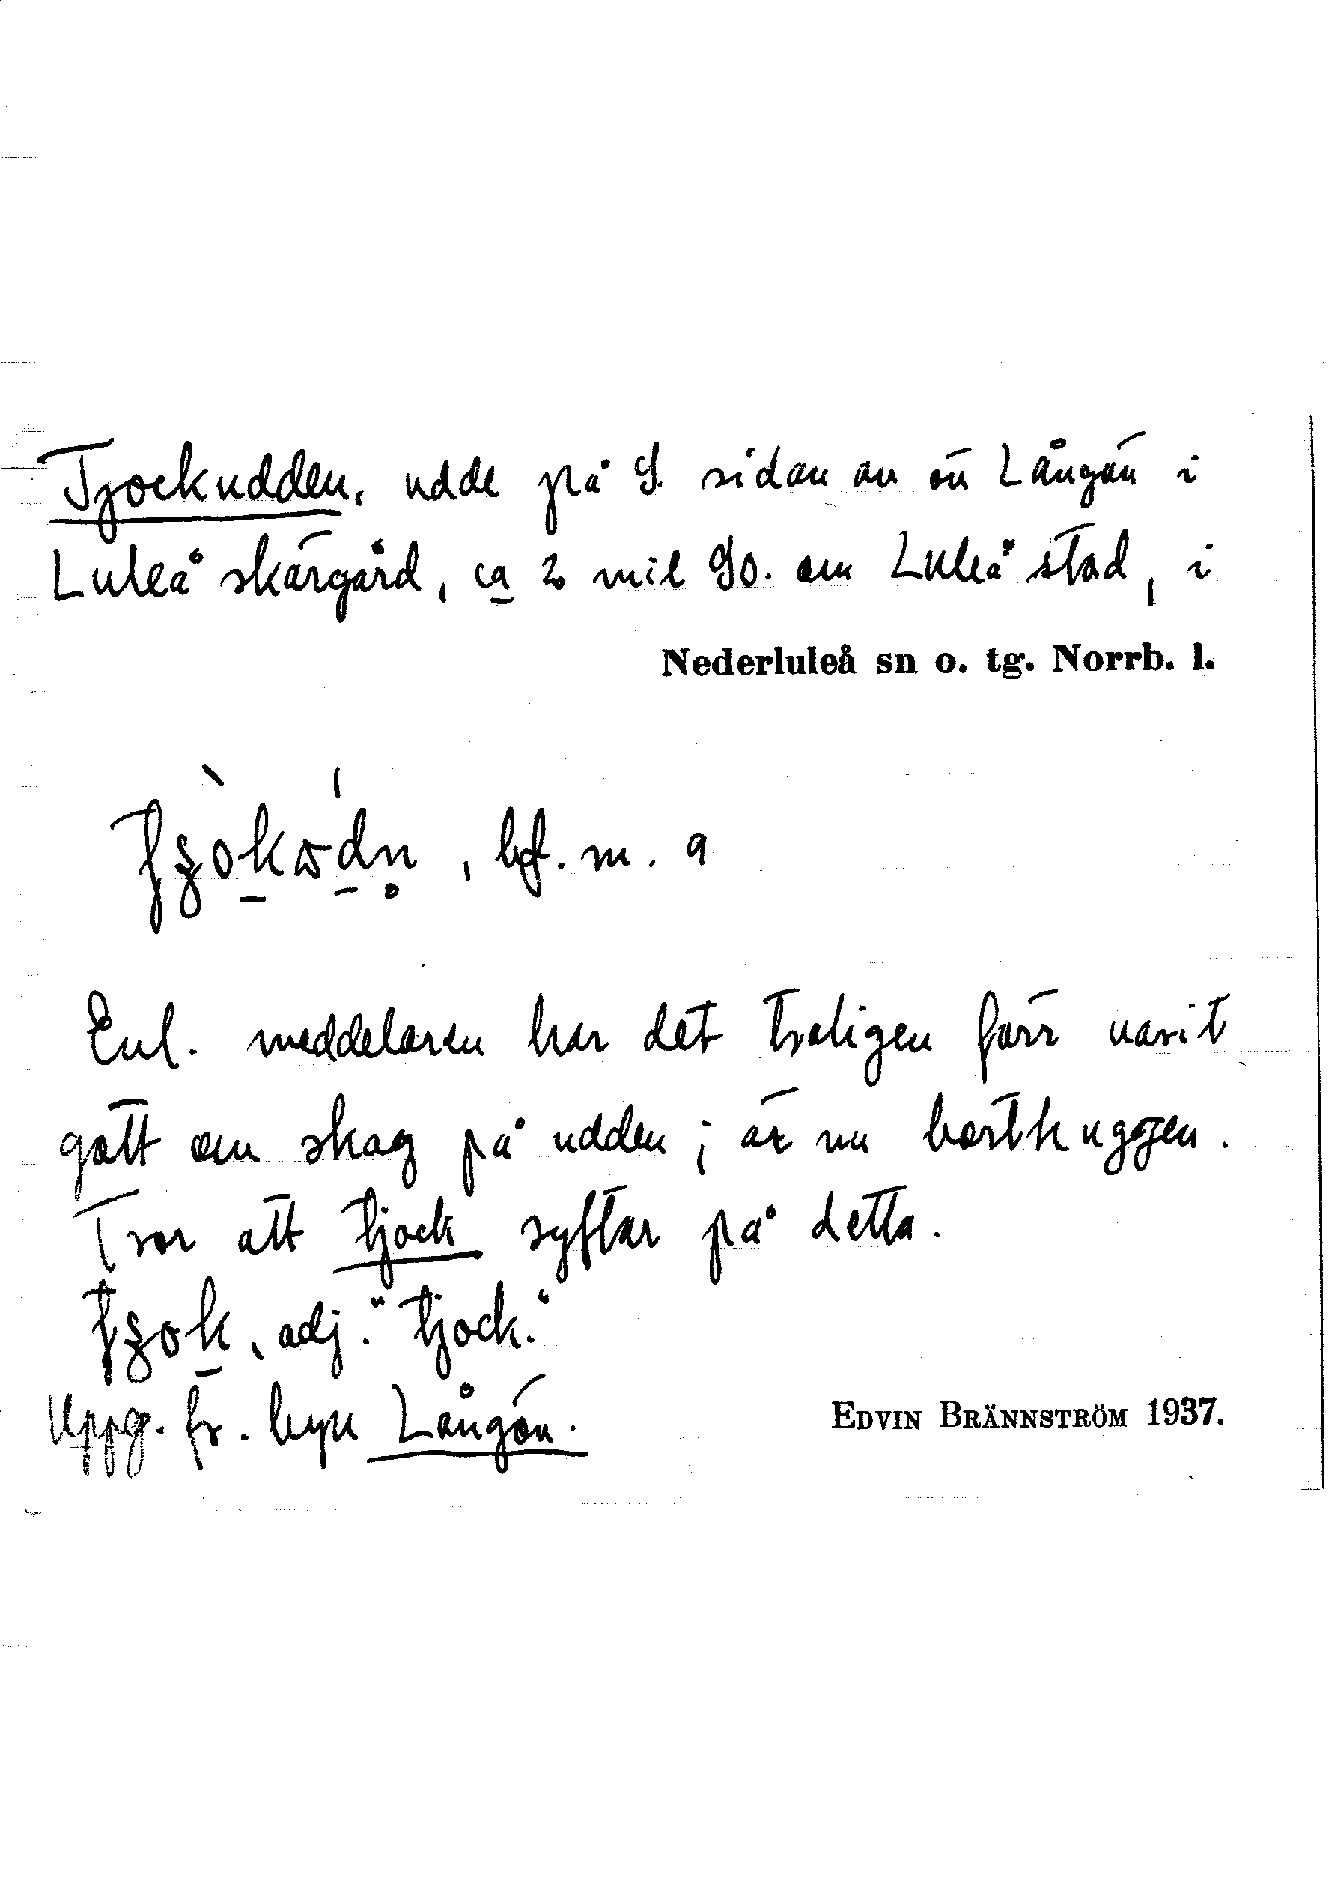 Tjockudden, udde på S. sidan av ön Långön i
Luleå skärgård, ca 2 mil SO. om Luleå stad, i
Nederluleå sn o. tg. Norrb. l.
, bf. m. a
Enl. meddelaren har det troligen förr varit
gott om skog på udden; är nu borthuggen.
Tror att tjock syftar på detta.
, adj. "tjock."
Uppg. fr. byn Långön.
EDVIN BRÄNNSTRÖM 1937.